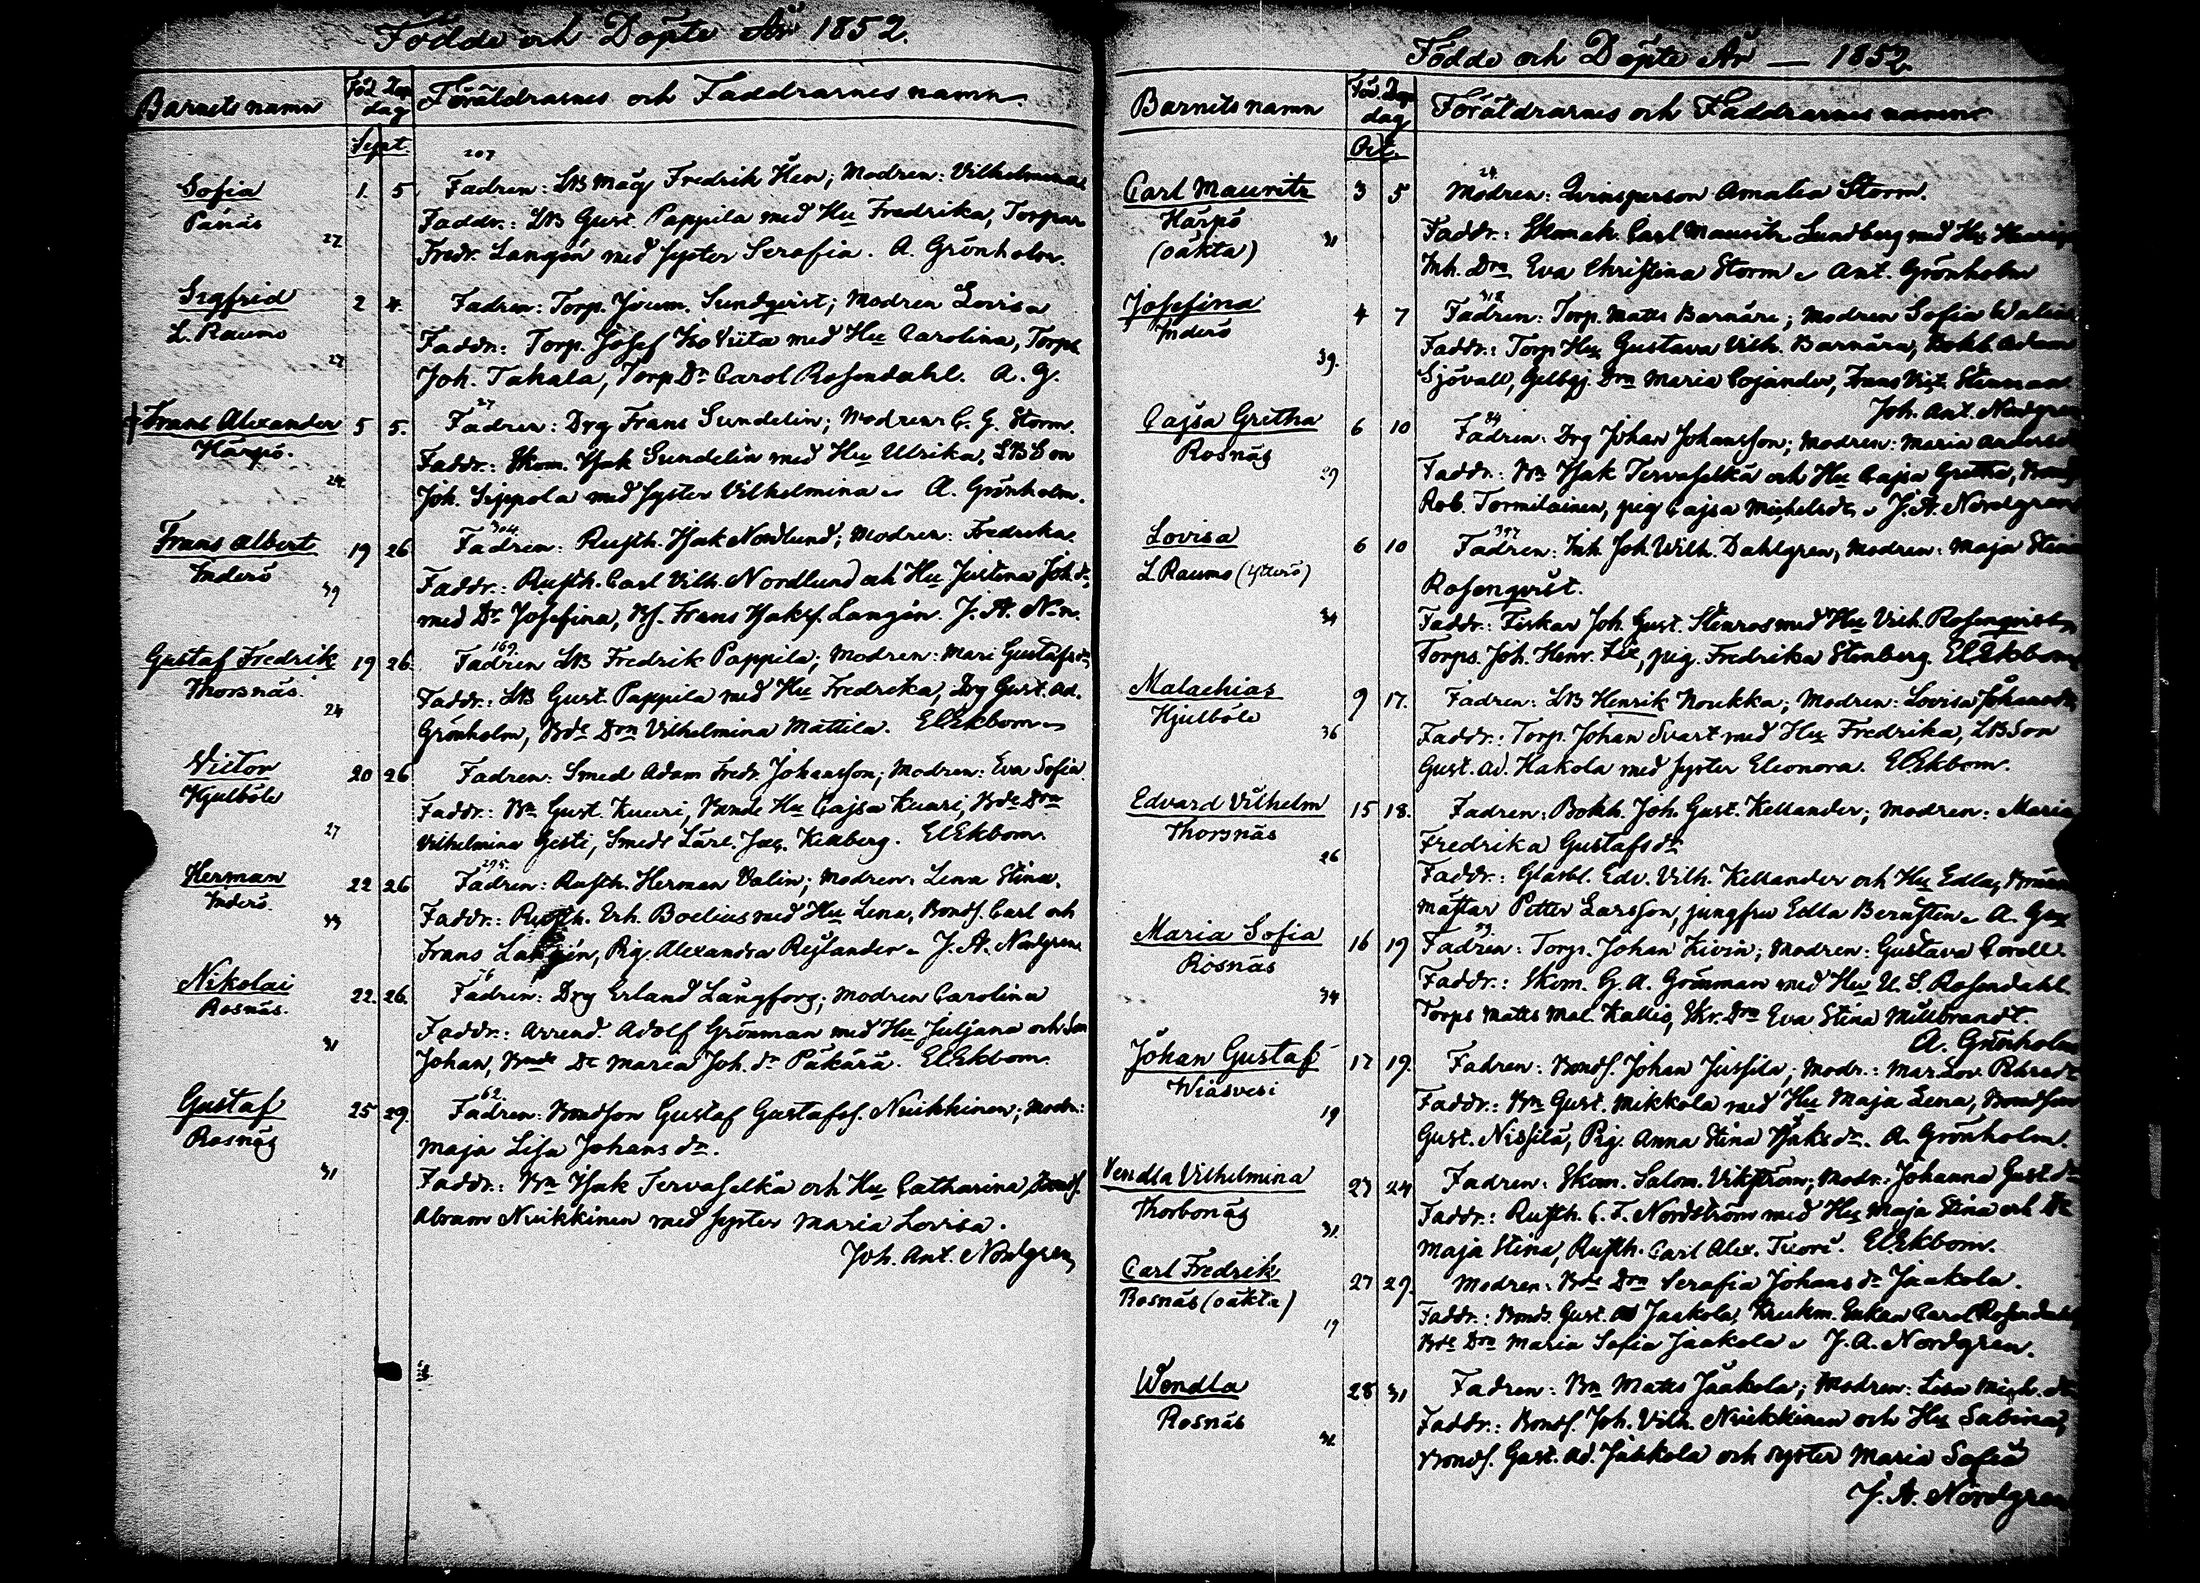 Födde och Döpte År 1852.
Barnets namn Föd. Döp. dag Föräldrarnes och Faddrarnes namn.
Sept.
207
Sofia 1. 5. Fadren: LB måg Fredrik Hen; Modren: Vilhelmina
Pänäs Faddr.: LB Gust. Pappila med Hu Fredrika, Torpar
27 Fredr. Langén med syster Serafia. A. Grönholm.
Sigfrid 2 4. Fadren: Torp. Joum. Sundqvist; Modren Lovisa
L. Raumo Faddr: Torp. Josef Iso Viita med Hu Carolina, Torps
27 Joh. Takala, Torp Dr Carol Rosendahl. A. G.
27
† Frans Alexander 5 5. Fadren: Drg Frans Sundelin; Modren C. G. Storm.
Harpö. Faddr.: Skom. Isak Sundelin med Hu Ulrika, LB Son
24 Joh. Seppola med syster Vilhelmina. A. Grönholm.
304
Frans Albert 19 26 Fadren: Rusth. Isak Nordlund; Modren: Fredrika
Inderö Faddr.: Rusth. Carl Vilh. Nordlund och Hu Justina Joh. dr
39 med Dr Josefina, Bs. Frans Isaks. Langén. J. A. N-n.
169
Gustaf Fredrik 19 26. Fadren LB Fredrik Pappila; Modren: Mari Gustafsdr
Thorsnäs. Faddr.: LB Gust. Pappila med Hu Fredrika, Drg Gust. Ad.
24 Grönholm, Bde Drn Vilhelmina Mattila. El Ekbom
Victor 20 26 Fadren: Smed Adam Fredr. Johansson; Modren: Eva Sofia
Kjulböle Faddr.: Bn Gust. Kuuri, Bonde Hu Cajsa Kuuri, Bde Drn
27 Vilhelmina Gesti, Smeds Lärl. Jac. Kellberg. El Ekbom.
295.
Herman 22 26 Fadren: Rusth. Herman Valin; Modren: Lena Stina.
Inderö. Faddr.: Rusth. Erh. Boelius med Hu Lena, Bonds. Carl och
33 Frans Langén, Pig. Alexandra Rejlander. J. A. Nordgren
76
Nikolai 22. 26. Fadren: Drg Erland Långforg; Modren Carolina
Rosnäs. Faddr.: Arrend. Adolf Grönman med Hu Juljana och Son
31 Johan, Bonde Dr Maria Joh. dr Päkärä. El Ekbom.
62.
Gustaf 25 29. Fadren: Bondson Gustaf Gustafss. Nuikkinen; Modr:
Rosnäs Maja Lisa Johans dr.
31 Faddr.: Bn Isak Tervaselkä och Hu Catharina, Bonds.
Abram Nuikkinen med syster Maria Lovisa.
Joh. Ant. Nordgren
Födde och Döpte År — 1852.
Barnets namn Föd Döp dag Föräldrarnes och Faddrarnes namn
Oct.
24
Carl Mauritz 3 5 Modren: Qvinsperson Amalia Storm.
Harpö Faddr.: Skomak. Carl Mauritz Lundberg med Hu
(oäkta) 31 Inh. Drn Eva Christina Storm. Ant. Grönholm
318
Josefina 4 7 Fadren: Torp. Matts Barnäre; Modren Sofia
Inderö Faddr.: Torp Hu Gustava Vilh. Barnära, Bokb. Adam
39. Sjövall, Gelbgj. Drn Maria Cojander, Frans Vict. Stenman
Joh. Ant. Nordgren
34
Cajsa Gretha 6 10 Fadren: Drg Johan Johansson; Modren: Maria Andersd
Rosnäs Faddr.: Bn Isak Tervaselkä och Hu Cajsa Gretha,
29 Rob. Tormilainen, pig Cajsa Michelsdr. J. A. Nordgren
397
Lovisa 6 10 Fadren: Inh Joh. Wilh. Dahlgren, Modren: Maja Stina
L Raumo (Ytterö) Rosenqvist.
34 Faddr.: Fiskar Joh. Gust. Stenros med Hu Vilh. Rosenqvist,
Torps. Joh. Henr. pig. Fredrika Stenberg. El Ekbom
Malachias 9 17. Fadren: LB Henrik Noukka; Modren: Lovisa Johansdr
Kjulböle Faddr.: Torp. Johan Svart med Hu Fredrika, LB Son
36 Gust. Ad. Hakola med syster Eleonora. El Ekbom.
Edvard Vilhelm 15 18. Fadren: Bokh. Joh. Gust. Kellander; Modren: Maria
Thorsnäs Fredrika Gustafsdr
26 Faddr.: Glasbl. Edv. Vilh. Kellander och Hu Edla,
mästar Petter Larsson, jungfru Edla Bernsten. A.
59.
Maria Sofia 16 19 Fadren: Torp. Johan Kivin; Modren: Gustava Corell.
Rosnäs Faddr.: Skom. G. A. Grönman med Hu U. S. Rosendahl.
34 Torps Matts Mal. Kallio, Skr. Drn Eva Stina Millbrandt.
A. Grönholm
Johan Gustaf 17 19. Fadren: Bonds. Johan Jussila; Modr.: Mar. Lov.
Wiäsvesi Faddr.: Bn Gust. Mikkola med Hu Maja Lena, Bondson
19 Gust. Nissilä, Pig. Anna Stina Isaksdr. A. Grönholm.
Vendla Vilhelmina 23 24 Fadren: Skom. Salom. Vikström; Modr: Johanna Gustdr
Thorbonäs Faddr.: Rusth. C. F. Nordström med Hu Maja Stina och Dr
31. Maja Stina, Rusth. Carl Alex. Tuori. El Ekbom.
Carl Fredrik 27 29. Modren: Bde Drn Serafia Johans dr Jaakola.
Rosnäs (oäkta) Faddr.: Bonds. Gust. Ad Jaakola, Enkan Carol Rosendahl
19 Bde Drn Maria Sofia Jaakola. J. A. Nordgren.
Wendla 28 31 Fadren: Bn Matts Jaakola; Modren: Lisa Mich. dr
Rosnäs Faddr.: Bonds. Joh. Vilh. Nuikkinen och Hu Sabina,
36 Bonds. Gust. Ad. Jaakola och syster Maria Sofia
J. A. Nordgren